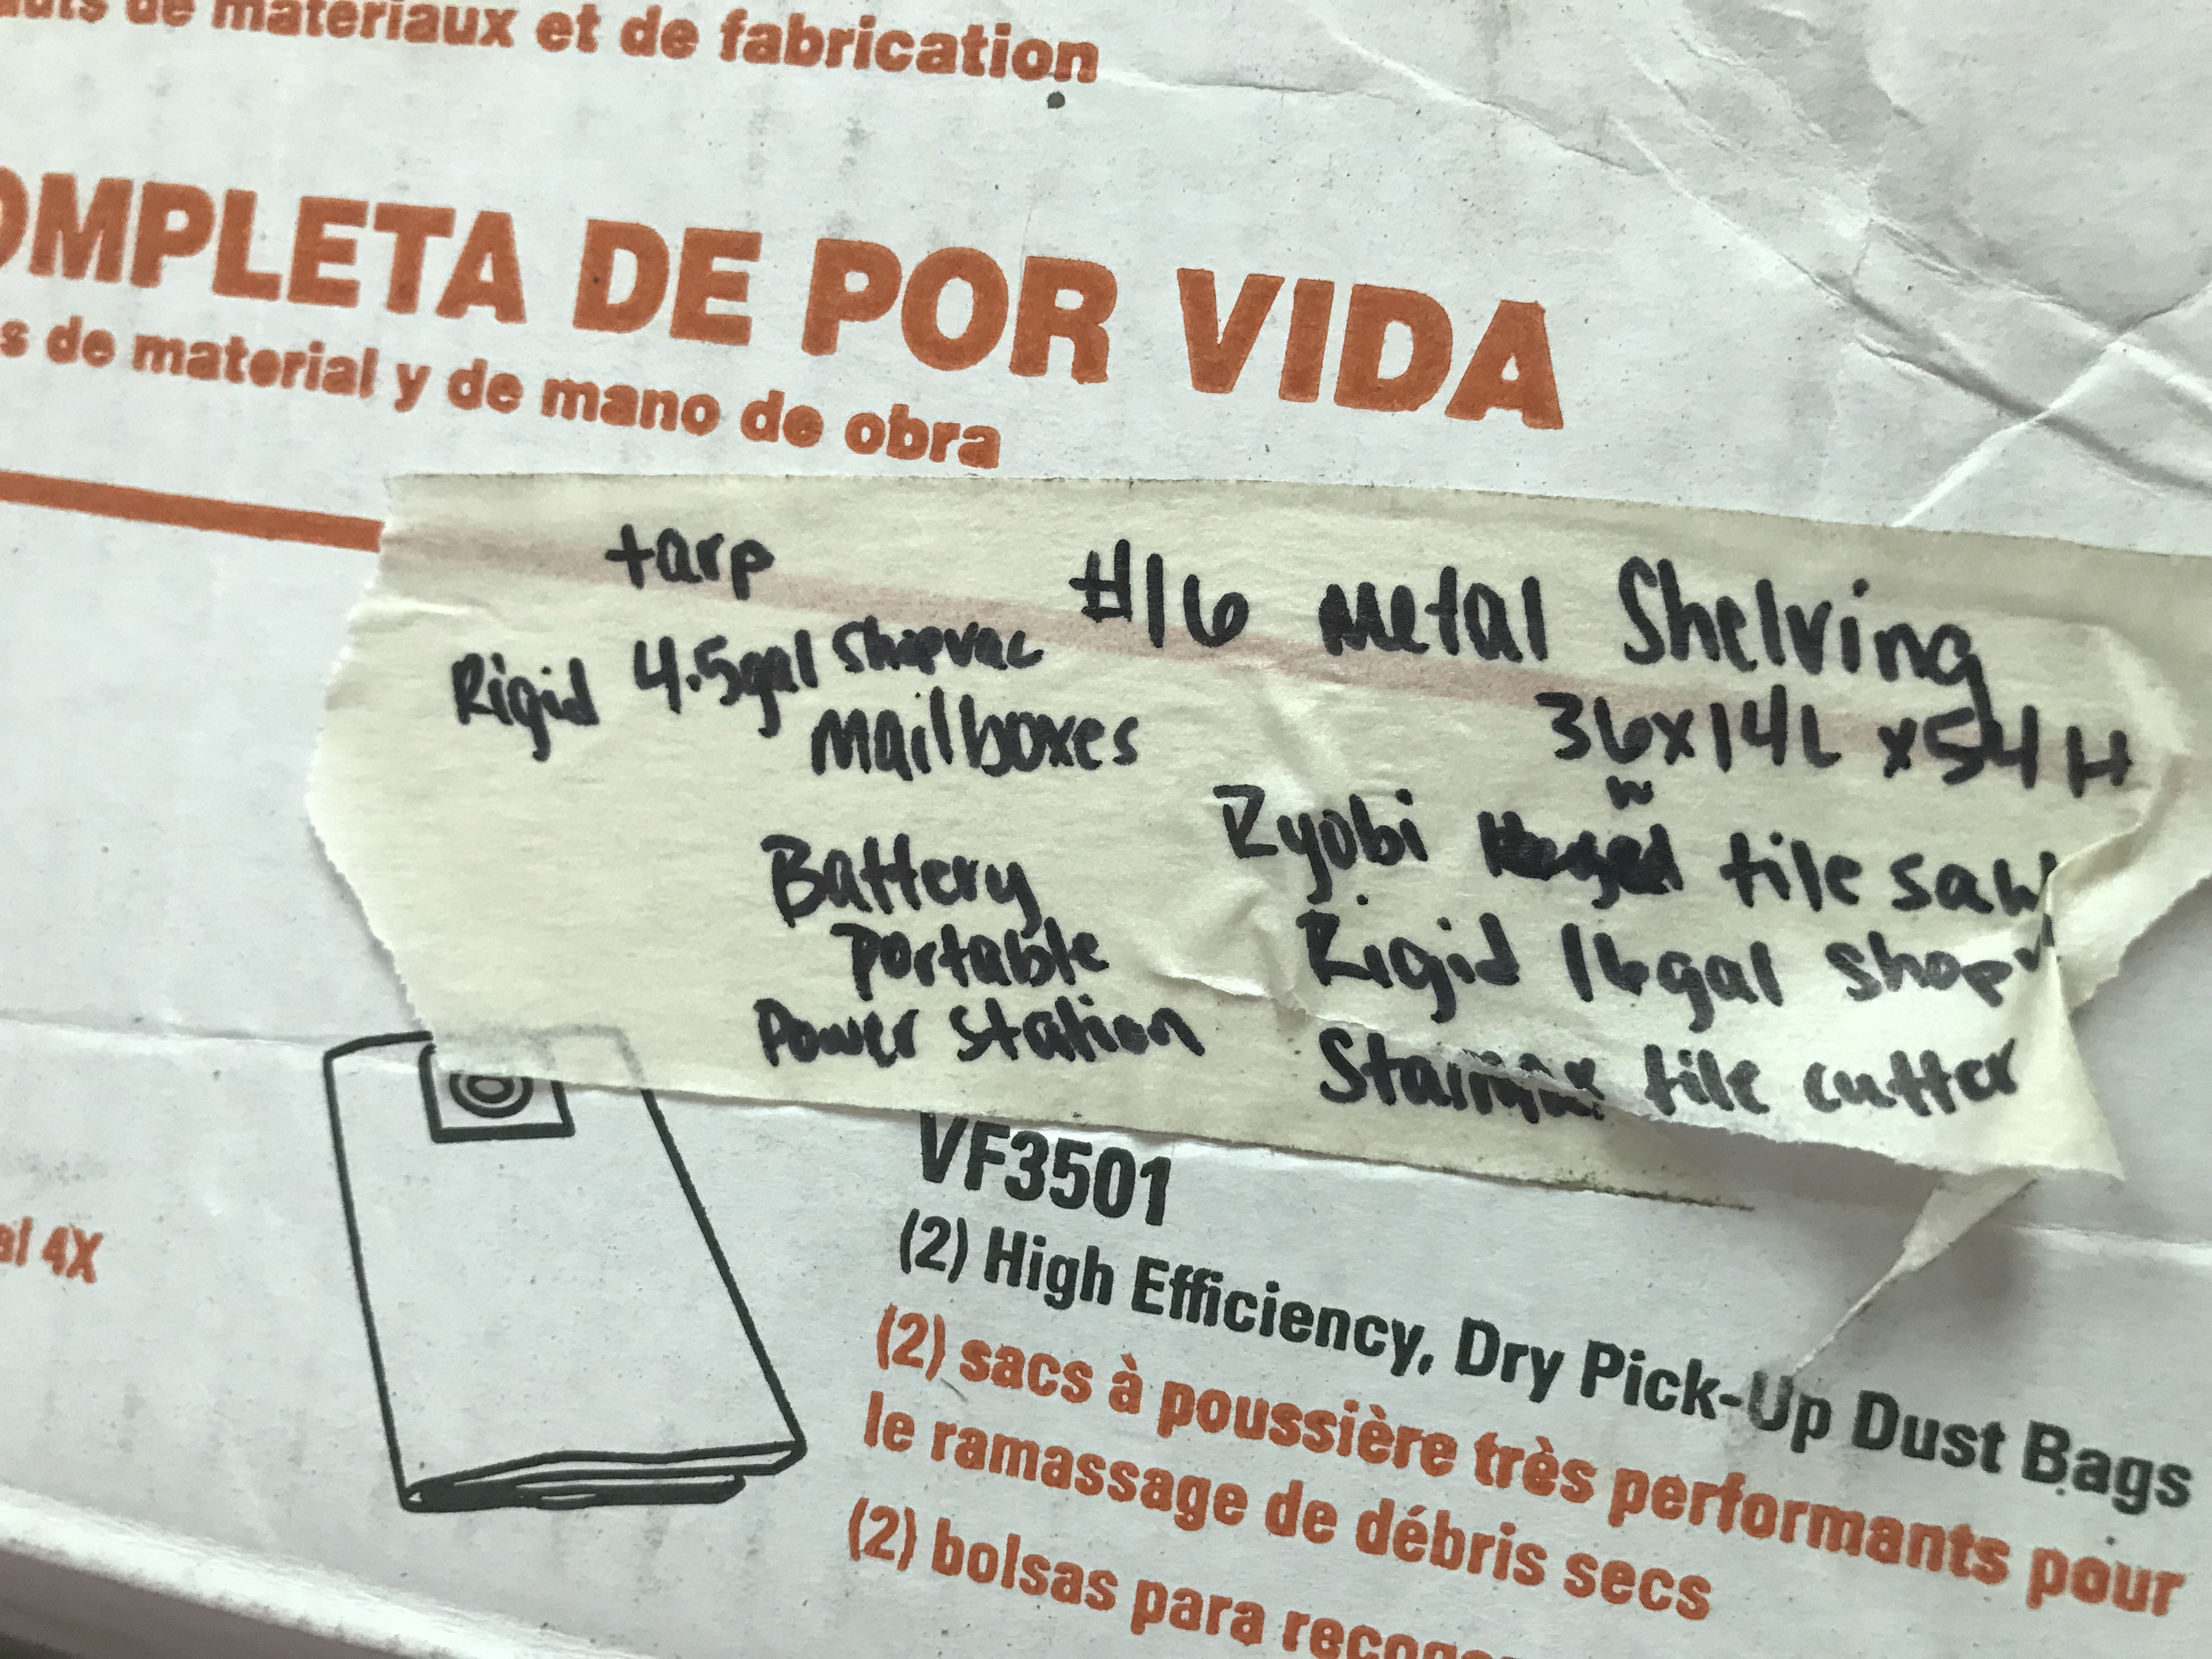 de materiaux et de fabrication
OMPLETA DE POR VIDA
s de material y de mano de obra
tarp
Rigid 4.5gal Shopvac
Mailboxes
Battery
Portable
Power Station
#16 Metal Shelving
36x14L x54H
W
Ryobi tile saw
Rigid 16gal shop
tile cutter
VF3501
(2) High Efficiency, Dry Pick-Up Dust Bags
(2) sacs à poussière très performants pour
le ramassage de débris secs
(2) bolsas para
al 4X